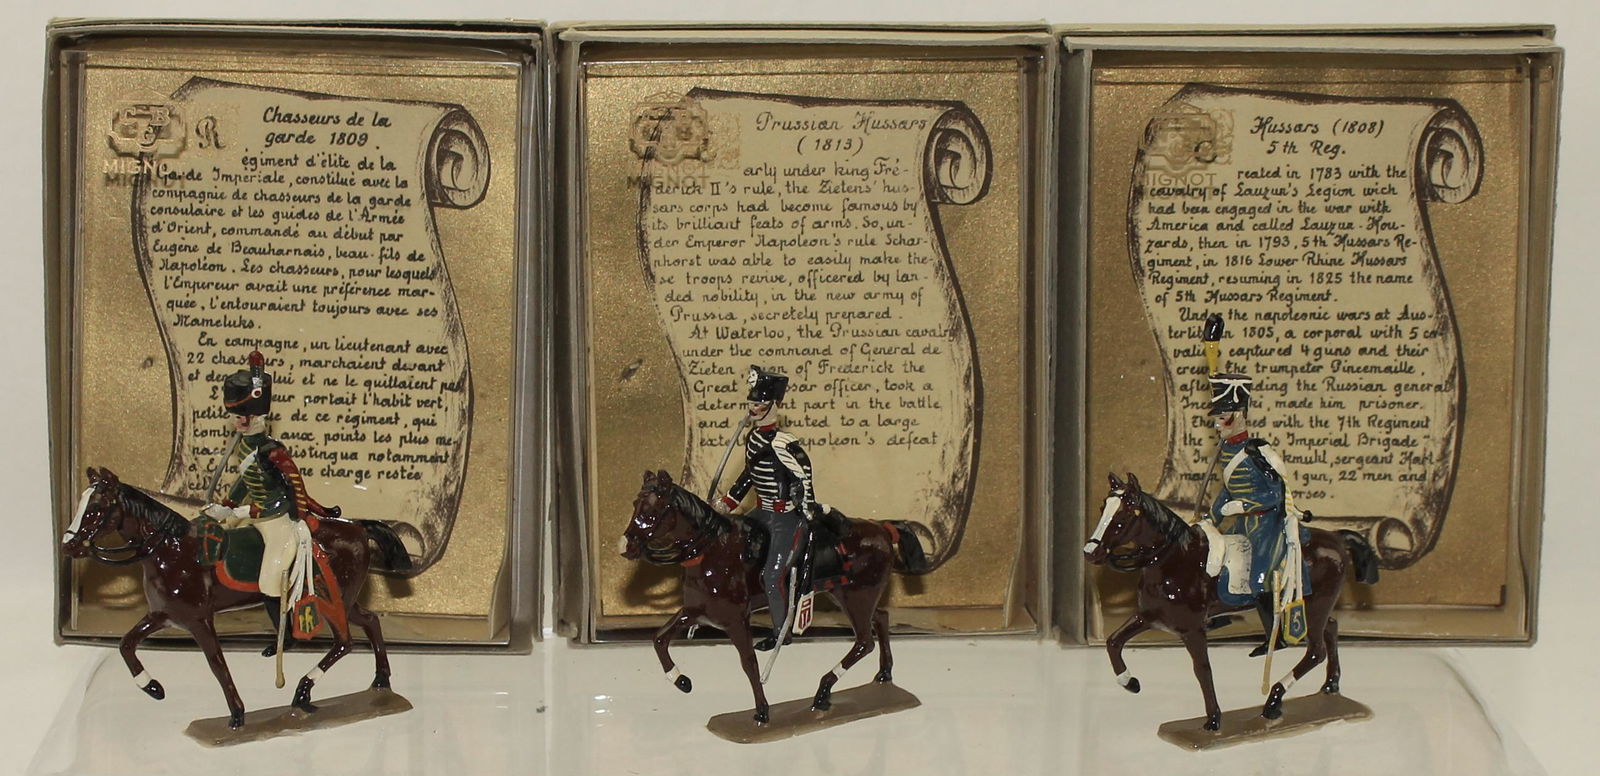 CBG
MIGNOT
MIGNOT
Chasseurs de la
garde 1809
R
égiment d'élite de la
garde Impériale, constitué avec la
compagnie de chasseurs de la garde
consulaire et les guides de l'Armée
d'Orient, commandé au début par
Eugène de Beauharnais, beau-fils de
Napoléon. Les chasseurs, pour lesquels
l'Empereur avait une préférence mar-
quée, l'entouraient toujours avec ses
Mameluks.
En campagne, un lieutenant avec
22 chasseurs, marchaient devant
et lui et ne le quittaient pas
portait l'habit vert,
petite de ce régiment, qui
aux points les plus me-
distingua notamment
à charge restée
MIGNOT
Prussian Hussars
(1813)
arly under king Fré-
derick II's rule, the Zietens' hus-
sars corps had become famous by
its brilliant feats of arms. So, un-
der Emperor Napoleon's rule Schar-
nhorst was able to easily make the-
se troops revive, officered by lan-
ded nobility, in the new army of
Prussia, secretely prepared.
At Waterloo, the Prussian cavalry
under the command of General de
Zieten of Frederick the
Great officer, took a
part in the battle
and to a large
Napoleon's defeat
MIGNOT
Hussars (1808)
5th Reg.
C
reated in 1783 with the
cavalry of Lauzun's Legion wich
had been engaged in the war with
America and called Lauzun-Hou-
zards, then in 1793, 5th Hussars Re-
giment, in 1816 Lower Rhine Hussars
Regiment, resuming in 1825 the name
of 5th Hussars Regiment.
Under the napoleonic wars at Aus-
terlitz in 1805, a corporal with 5 ca-
captured 4 guns and their
the trumpeter Pincemaille,
the Russian general
made him prisoner.
with the 7th Regiment
the Imperial Brigade"
In sergeant Hart-
1 gun, 22 men and
5